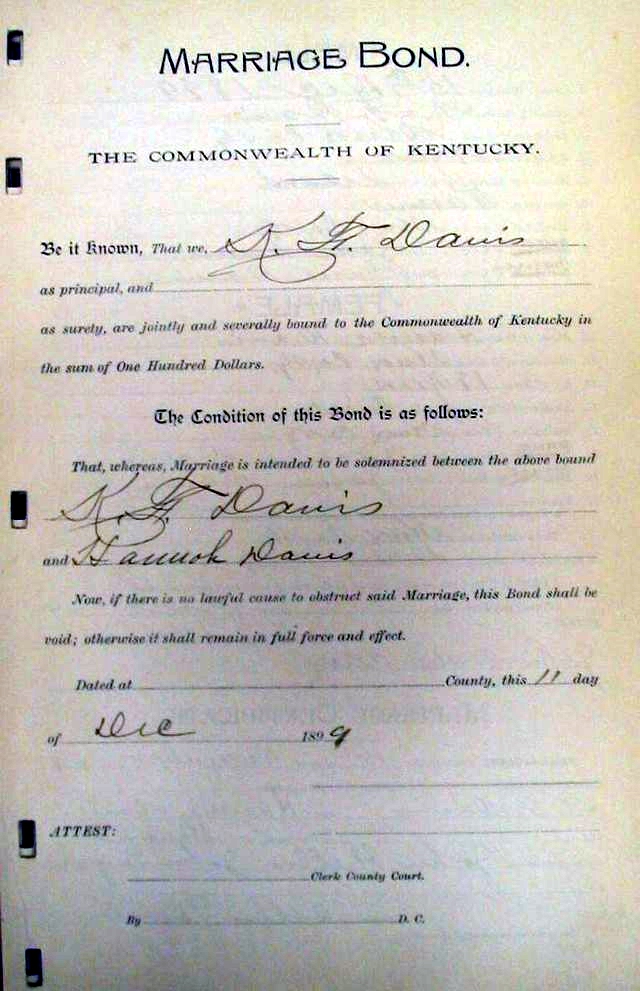 MARRIAGE BOND.
THE COMMONWEALTH OF KENTUCKY.
Be it Known, That we, K. F. Davis
as principal, and
as surety, are jointly and severally bound to the Commonwealth of Kentucky in
the sum of One Hundred Dollars.
The Condition of this Bond is as follows:
That, whereas, Marriage is intended to be solemnized between the above bound
K. F. Davis
and Hannah Davis
Now, if there is no lawful cause to obstruct said Marriage, this Bond shall be
void; otherwise it shall remain in full force and effect.
Dated at County, this 11 day
of Dec 1899
ATTEST:
Clerk County Court.
By D. C.